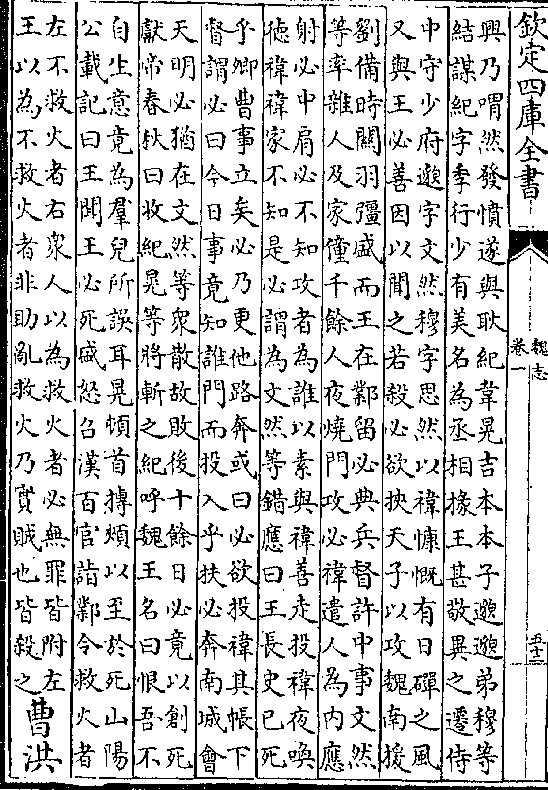 欽定四庫全書
魏志
卷一
興乃喟然發憤遂與耿紀韋晃吉本本子邈邈弟穆等
結謀紀字季行少有美名為丞相掾王甚敬異之遷侍
中守少府邈字文然穆字思然以禕慷慨有日磾之風
又與王必善因以聞之若殺必欲挾天子以攻魏南援
劉備時關羽彊盛而王在鄴留必典兵督許中事文然
等率雜人及家僮千餘人夜燒門攻必禕遣人為內應
射必中肩必不知攻者為誰以素與禕善走投禕夜喚
徳禕禕家不知是必謂為文然等錯應曰王長史已死
乎卿曹事立矣必乃更他路奔或曰必欲投禕其帳下
督謂必曰今日事竟知誰門而投入乎扶必奔南城會
天明必猶在文然等衆散故敗後十餘日必竟以創死
獻帝春秋曰收紀晃等將斬之紀呼魏王名曰恨吾不
自生意竟為羣兒所誤耳晃頓首搏頰以至於死山陽
公載記曰王聞王必死盛怒召漢百官詣鄴令救火者
左不救火者右衆人以為救火者必無罪皆附左
王以為不救火者非助亂救火乃實賊也皆殺之
曹洪